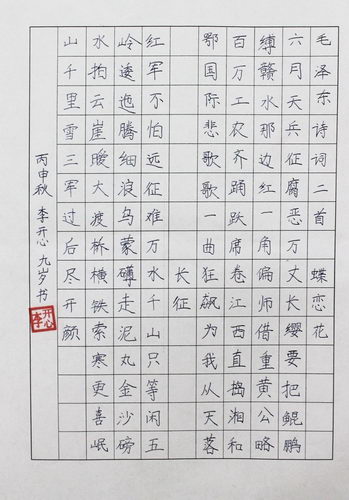 毛泽东诗词二首 蝶恋花
六月天兵征腐恶万丈长缨要把鲲鹏
缚赣水那边红一角偏师借重黄公略
百万工农齐踊跃席卷江西直捣湘和
鄂国际悲歌歌一曲狂飙为我从天落
长征
红军不怕远征难万水千山只等闲五
岭逶迤腾细浪乌蒙礴走泥丸金沙磅
水拍云崖暖大渡桥横铁索寒更喜岷
山千里雪三军过后尽开颜
丙申秋 李开心 九岁书
李开心